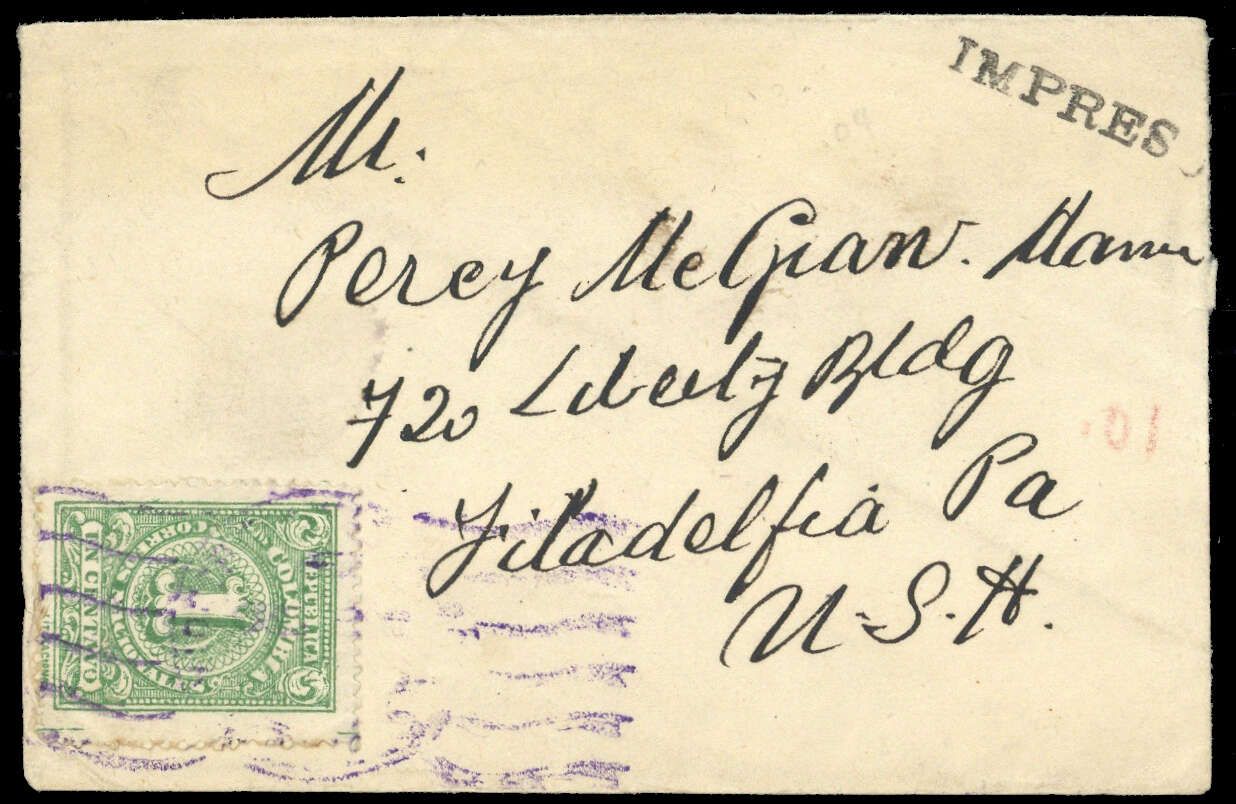 IMPRES
Mr.
Percy McGraw.
720 Liberty Bldg
Filadelfia Pa
U.S.A.
10
REPUBLICA
DE COLOMBIA
CORREOS NACIONALES
1
UN CENTAVO